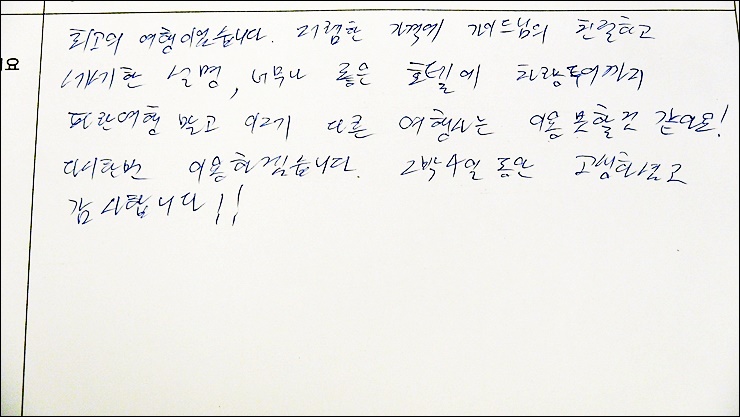 최고의 여행이었습니다. 저렴한 가격에 가이드님의 친절하고
세세한 설명, 너무나 좋은 호텔에 차량투어까지
파란여행 말고 이제 다른 여행사는 이용 못할것 같아요!
다시한번 이용하겠습니다. 2박4일 동안 고생하셨고
감사합니다!!
요